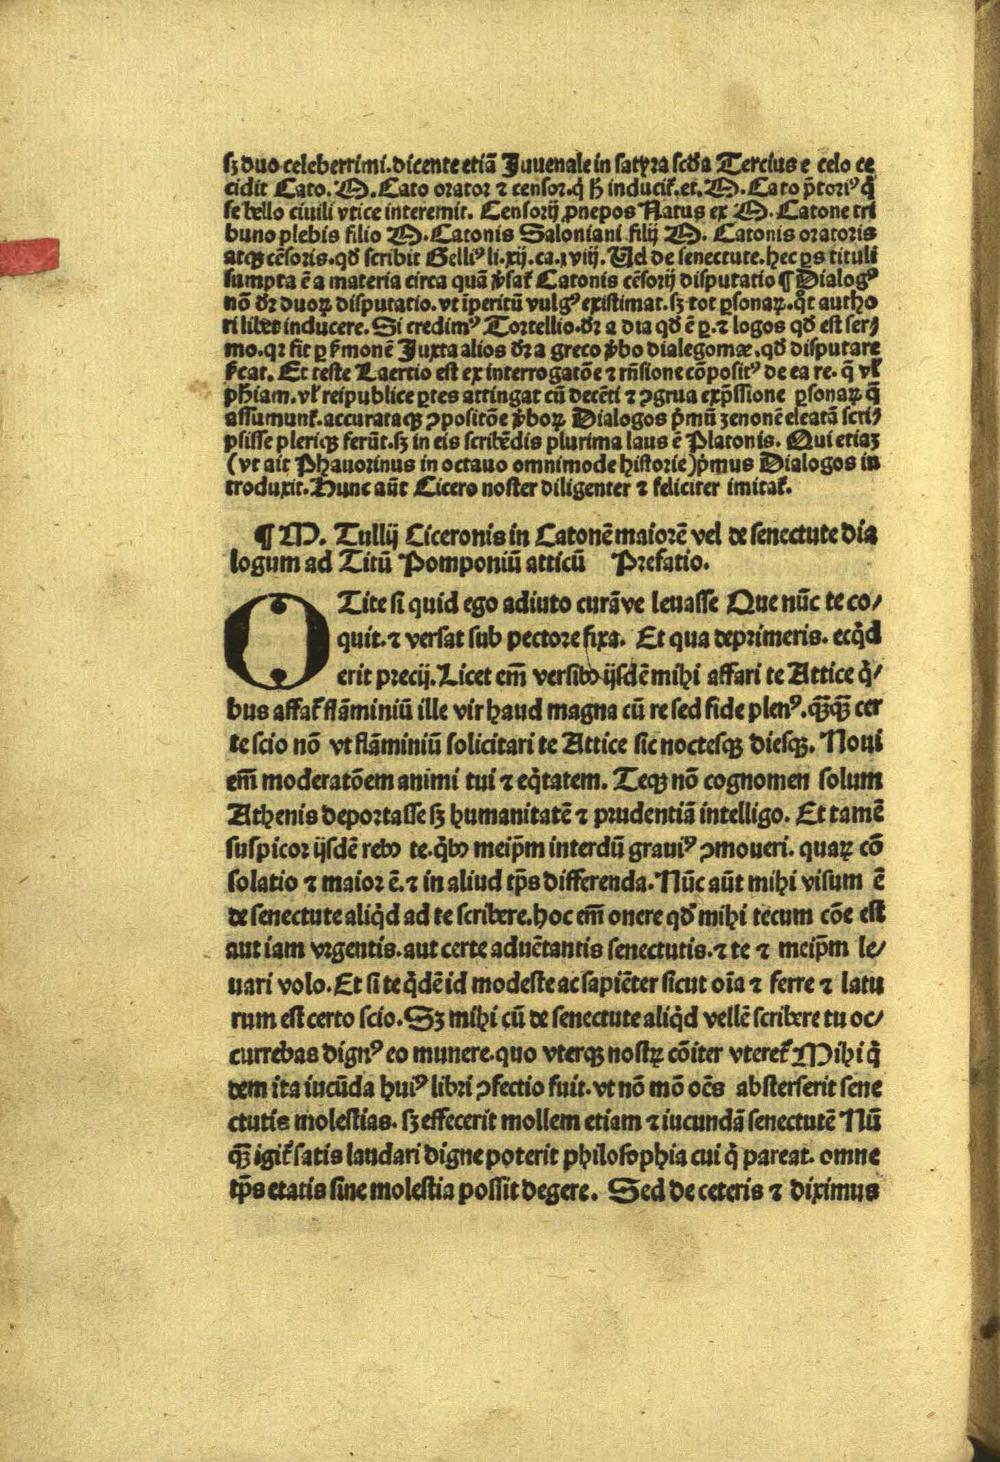 sꝫ duo celeberrimi.dicente etiā Juuenale in satyra scd̄a Tercius e celo ce
cidit Cato.M.Cato orator ⁊ censor.q̇ h̄ inducit᷑.et.M.Cato p̄toriꝰ q̇
se bello ciuili vtice interemit. Censorij ꝓnepos Natus ex M. Catone tri
buno plebis filio M.Catonis Saloniani filij M. Catonis oratoris
atqꝫ cēsoris.qd̄ scribit Gelliꝰ li.xij.ca.xviij. Vd de senectute.hec ꝑs tituli
sumpta ē a materia circa quā v̓sat᷑ Catonis cēsorij disputatio ¶ Dialogꝰ
nō dr̄ duoꝝ disputatio.vt īperitū vulgꝰ existimat.sꝫ tot ꝑsonaꝝ.qt̄ autho
ri libet inducere. Si credimꝰ Tortellio.dr̄ a dia qd̄ ē ꝑ.⁊ logos qd̄ est ser/
mo.qꝛ fit ꝑ s̓monē Juxta alios dr̄ a greco v̓bo dialegomæ.qd̄ disputare
s̓cat. Et teste Laertio est ex interrogatōe ⁊ rn̄sione cōpositꝰ de ea re. q̄ vl̓
phiam.vl̓ reipublice ꝑtes attingat cū decēti ⁊ ꝯgrua exp̄ssione ꝑsonaꝝ q̄
assumunt᷑.accurataqꝫ ꝯpositōe v̓boꝝ Dialogos p̄mū zenonē eleatā scri/
psisse pleriqꝫ ferūt.sꝫ in eis scribēdis plurima laus ē Platonis. Qui etiaꝫ
(vt ait Phauorinus in octauo omnimode historie)p̄mus Dialogos in
troduxit.Hunc aūt Cicero noster diligenter ⁊ feliciter imitat᷑.
¶ M. Tullij Ciceronis in Catonē maiorē vel de senectute dia
logum ad Titū Pomponiū atticū Prefatio.
O Tite si quid ego adiuto curāve leuasse Que nūc te co/
quit.⁊ versat sub pectore fixa. Et qua deprimeris. ecq̇d
erit precij.Licet em̄ versibꝰ ijsdē mihi affari te Attice q̇/
bus affat᷑ flāminiū ille vir haud magna cū re sed fide plenꝰ.qꝫ̄qꝫ̄ cer
te scio nō vt flāminiū solicitari te Attice sic noctesqꝫ diesqꝫ. Noui
em̄ moderatōem animi tui ⁊ eq̇tatem. Teqꝫ nō cognomen solum
Athenis deportasse sꝫ humanitatē ⁊ prudentiā intelligo. Et tamē
suspicor ijsdē rebꝰ te.q̇bꝰ meip̄m interdū grauiꝰ ꝯmoueri. quaꝝ cō
solatio ⁊ maior ē.⁊ in aliud tp̄s differenda.Nūc aūt mihi visum ē
de senectute aliq̇d ad te scribere.hoc em̄ onere qd̄ mihi tecum cōe est
aut iam vrgentis.aut certe aduētantis senectutis.⁊ te ⁊ meip̄m le/
uari volo.Et si te q̇dē id modeste ac sapiēter sicut oīa ⁊ ferre ⁊ latu
rum est certo scio.Sꝫ mihi cū de senectute aliq̇d vellē scribere tu oc/
currebas dignꝰ eo munere.quo vterqꝫ nostꝝ cōiter vteret᷑ Mihi q̇
dem ita iucūda huiꝰ libri ꝯfectio fuit.vt nō mō oēs absterserit sene
ctutis molestias. sꝫ effecerit mollem etiam ⁊ iucundā senectutē Nū
qꝫ̄ igit᷑ satis laudari digne poterit philosophia cui q̇ pareat. omne
tp̄s etatis sine molestia possit degere. Sed de ceteris ⁊ diximus